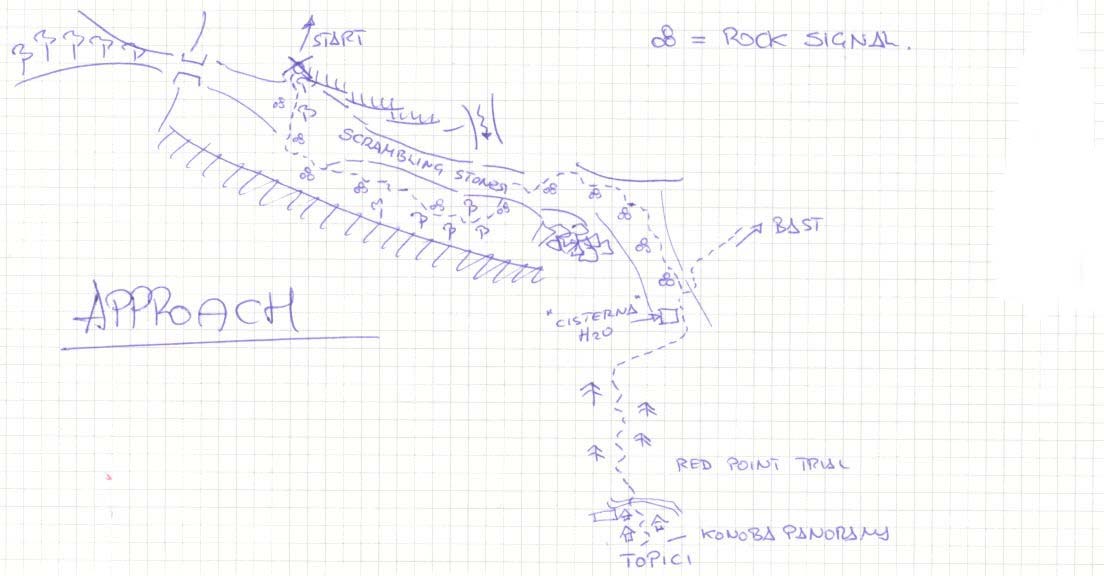 START
= ROCK SIGNAL.
SCRAMBLING STONES
BAST
APPROACH
"CISTERNA"
H2O
RED POINT TRIAL
KONOBA PANORAMA
TOPICI